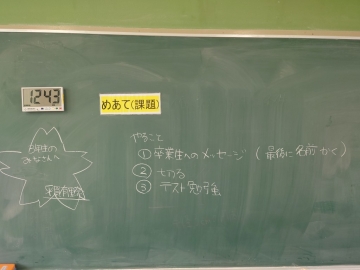 1243
めあて(課題)
6年生の
みなさんへ
やること
①卒業生へのメッセージ (最後に名前かく)
②切る
③テスト勉強